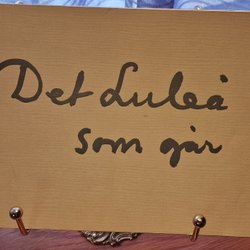 Det Luleå
som går